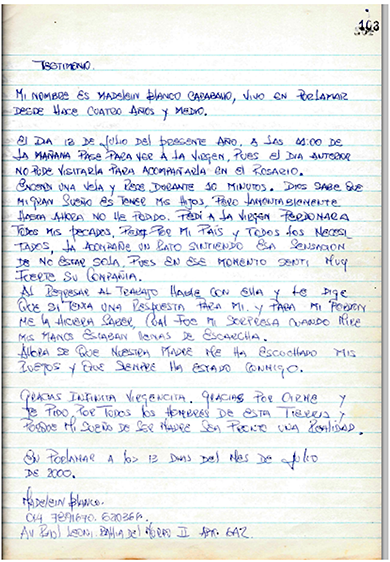 103
TESTIMONIO.
MI NOMBRE ES MADELEIN BLANCO CARABAÑO, VIVO EN PORLAMAR
DESDE HACE CUATRO AÑOS Y MEDIO.
EL DIA 13 DE JULIO DEL PRESENTE AÑO, A LAS 11:00 DE
LA MAÑANA PASE PARA VER A LA VIRGEN, PUES EL DIA ANTERIOR
NO PUDE VISITARLA PARA ACOMPAÑARLA EN EL ROSARIO.
ENCENDI UNA VELA Y RECE DURANTE 10 MINUTOS. DIOS SABE QUE
MI GRAN SUEÑO ES TENER MIS HIJOS, PERO LAMENTABLEMENTE
HASTA AHORA NO HE PODIDO. PEDI A LA VIRGEN PERDONARA
TODOS MIS PECADOS, POR MI PAIS Y TODOS LOS NECESI
TADOS, LA ACOMPAÑE UN RATO SINTIENDO ESA SENSACION
DE NO ESTAR SOLA, PUES EN ESE MOMENTO SENTI MUY
FUERTE SU COMPAÑIA.
AL REGRESAR AL TRABAJO HABLE CON ELLA Y LE DIJE
QUE SI TENIA UNA RESPUESTA PARA MI, Y PARA MI PERDON
ME LA HICIERA SABER, CUAL FUE MI SORPRESA CUANDO MIRE
MIS MANOS ESTABAN LLENAS DE ESCARCHA.
AHORA SE QUE NUESTRA MADRE ME HA ESCUCHADO MIS
RUEGOS Y QUE SIEMPRE HA ESTADO CONMIGO.
GRACIAS INFINITA VIRGENCITA. GRACIAS POR OIRME Y
TE PIDO POR TODOS LOS HOMBRES DE ESTA TIERRA Y
PORQUE MI SUEÑO DE SER MADRE SEA PRONTO UNA REALIDAD.
EN PORLAMAR A LOS 13 DIAS DEL MES DE JULIO
DE 2000.
MADELEIN BLANCO.
AV RAUL LEONI. BAHIA DEL MORRO II APTO. 6A2.